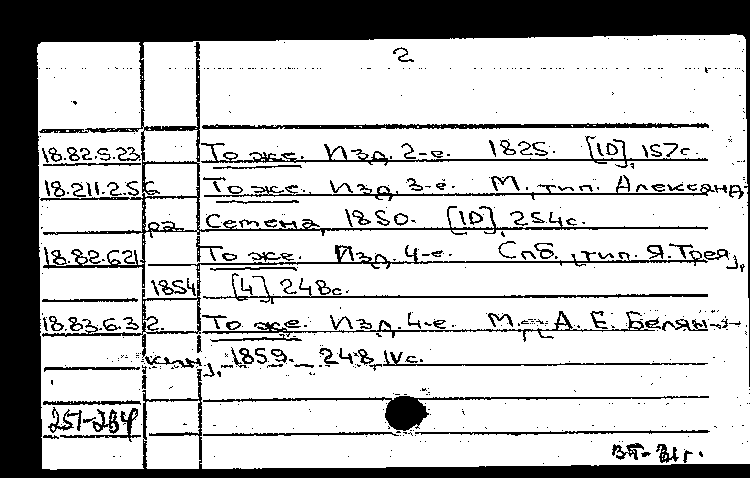 2
18.82.5.23 То же. Изд. 2-е. 1825. [10], 157с.
18.211.2.56 То же. Изд. 3-е. М., тип. Александ-
ра Семена, 1850. [10], 254с.
18.82.6.21 То же. Изд. 4-е. Спб., [тип. Я. Трея],
1854 [4], 248с.
18.83.6.32. То же. Изд. 4-е. М., [А. Е. Белян-
кин], 1859. 248, IVс.
251-284